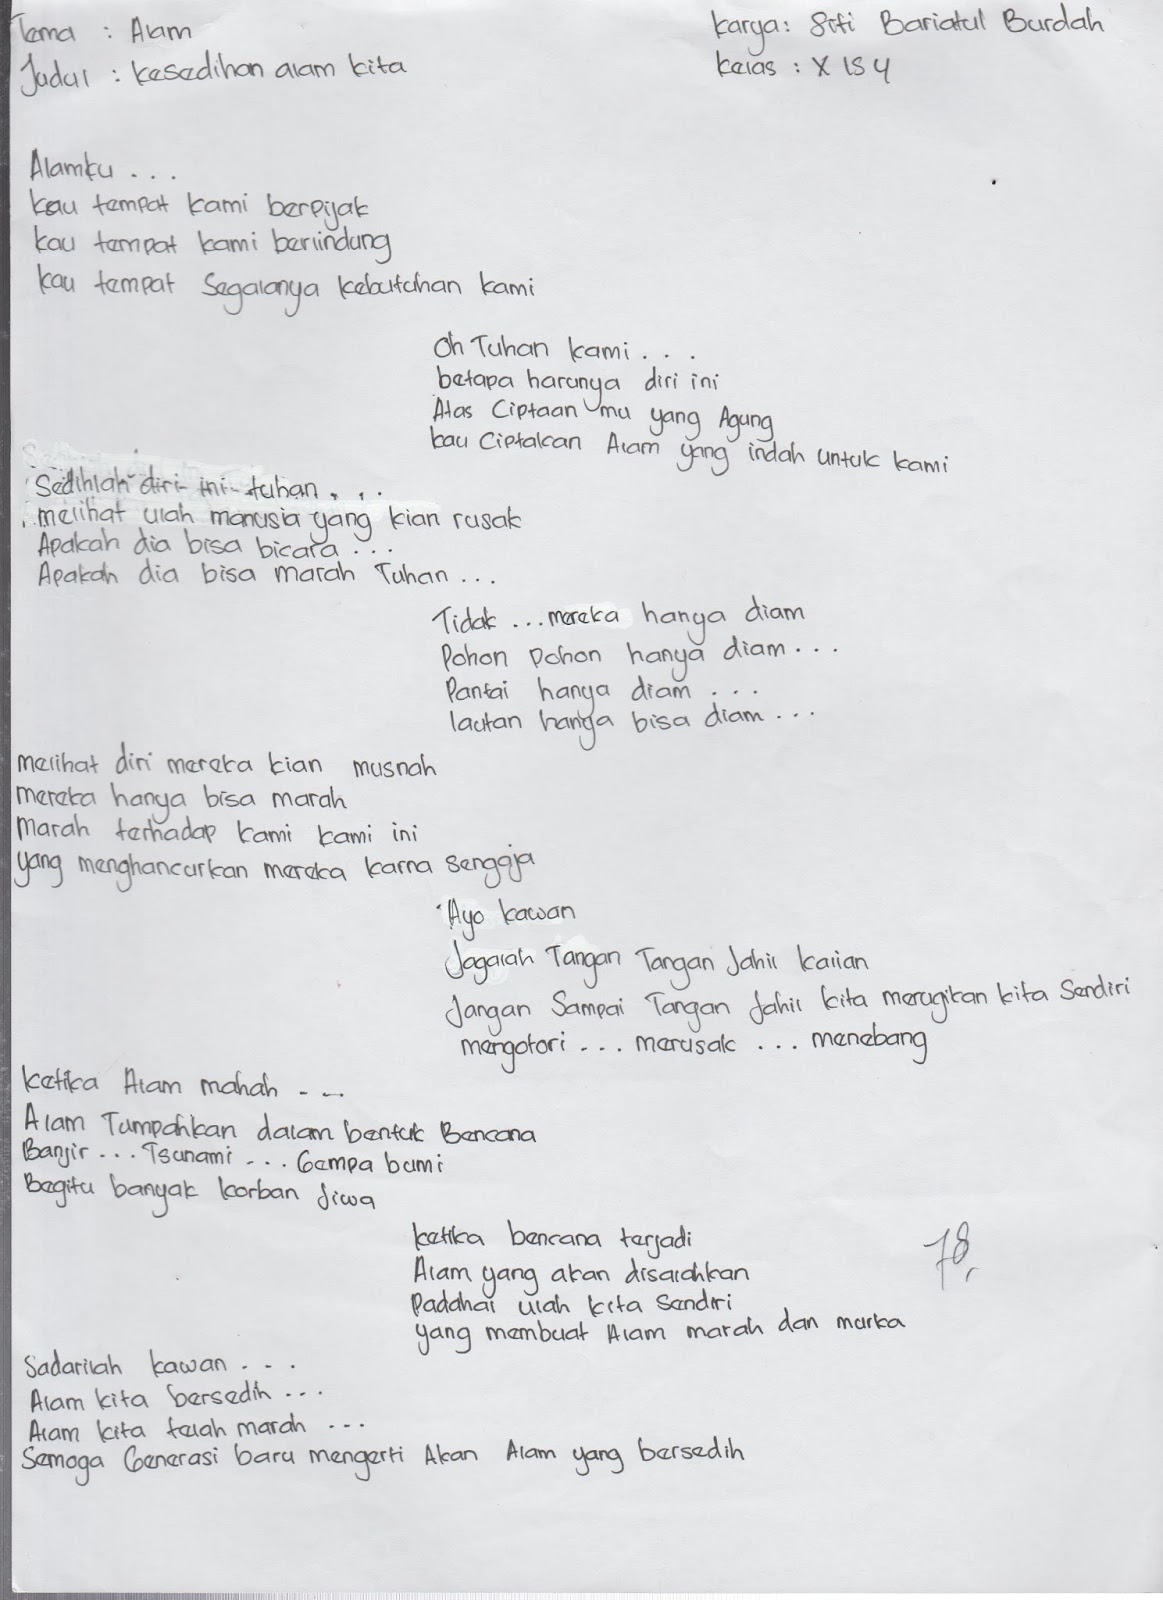 Tema : Alam
Karya: Siti Bariatul Burdah
Judul : kesedihan alam kita
kelas : X IS 4
Alamku . . .
kau tempat kami berpijak
kau tempat kami berlindung
kau tempat Segalanya kebutuhan kami
Oh Tuhan kami . . .
betapa harunya diri ini
Atas Ciptaan mu yang Agung
kau Ciptakan Alam yang indah untuk kami
Sedihlah diri ini tuhan . . .
melihat ulah manusia yang kian rusak
Apakah dia bisa bicara . . .
Apakah dia bisa marah Tuhan . . .
Tidak . . . mereka hanya diam
Pohon pohon hanya diam . . .
Pantai hanya diam . . .
lautan hanya bisa diam . . .
melihat diri mereka kian musnah
mereka hanya bisa marah
Marah terhadap kami kami ini
yang menghancurkan mereka karna sengaja
Ayo kawan
Jagalah Tangan Tangan Jahil kalian
Jangan Sampai Tangan Jahil kita merugikan kita Sendiri
mengotori . . . merusak . . . menebang
ketika Alam mahah . . .
Alam Tumpahkan dalam bentuk Bencana
Banjir . . . Tsunami . . . Gempa bumi
Begitu banyak korban Jiwa
ketika bencana terjadi
Alam yang akan disalahkan
Padahal ulah kita Sendiri
yang membuat Alam marah dan murka
78,
Sadarilah kawan . . .
Alam kita bersedih . . .
Alam kita telah marah . . .
Semoga Generasi baru mengerti Akan Alam yang bersedih